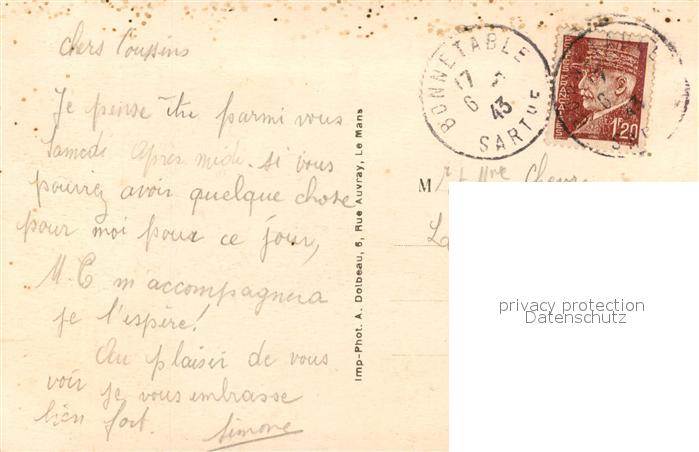 chers Coussins
Je pense être parmi vous
Samedi après midi. si vous
pouvriez avoir quelque chose
pour moi pour ce jour,
M.C m'accompagnera
je l'espère!
Au plaisir de vous
voir je vous embrasse
bien fort.
Simone
Imp-Phot. A. Dolbeau, 6, Rue Auvray, Le Mans
BONNETABLE
17
6
43
SARTHE
1,20
M
Mme
privacy protection
Datenschutz